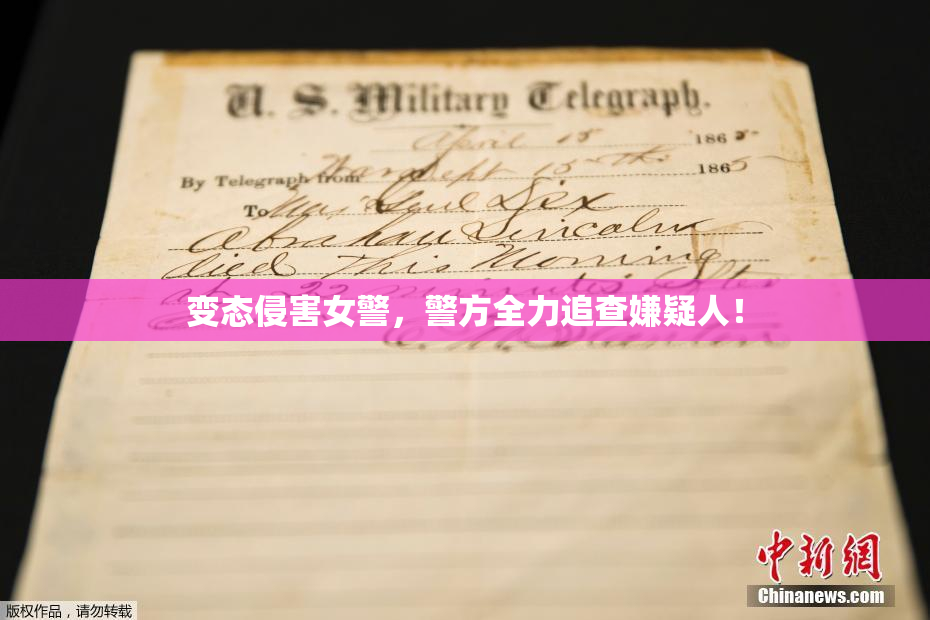 U. S. Military Telegraph.
April 15 1865
By Telegraph from War Dept 15th 1865
To Maj Genl Dix
Abraham Lincoln
died This Morning
at 22 minutes after
变态侵害女警，警方全力追查嫌疑人！
E. M. Stanton
中新网
Chinanews.com
版权作品，请勿转载